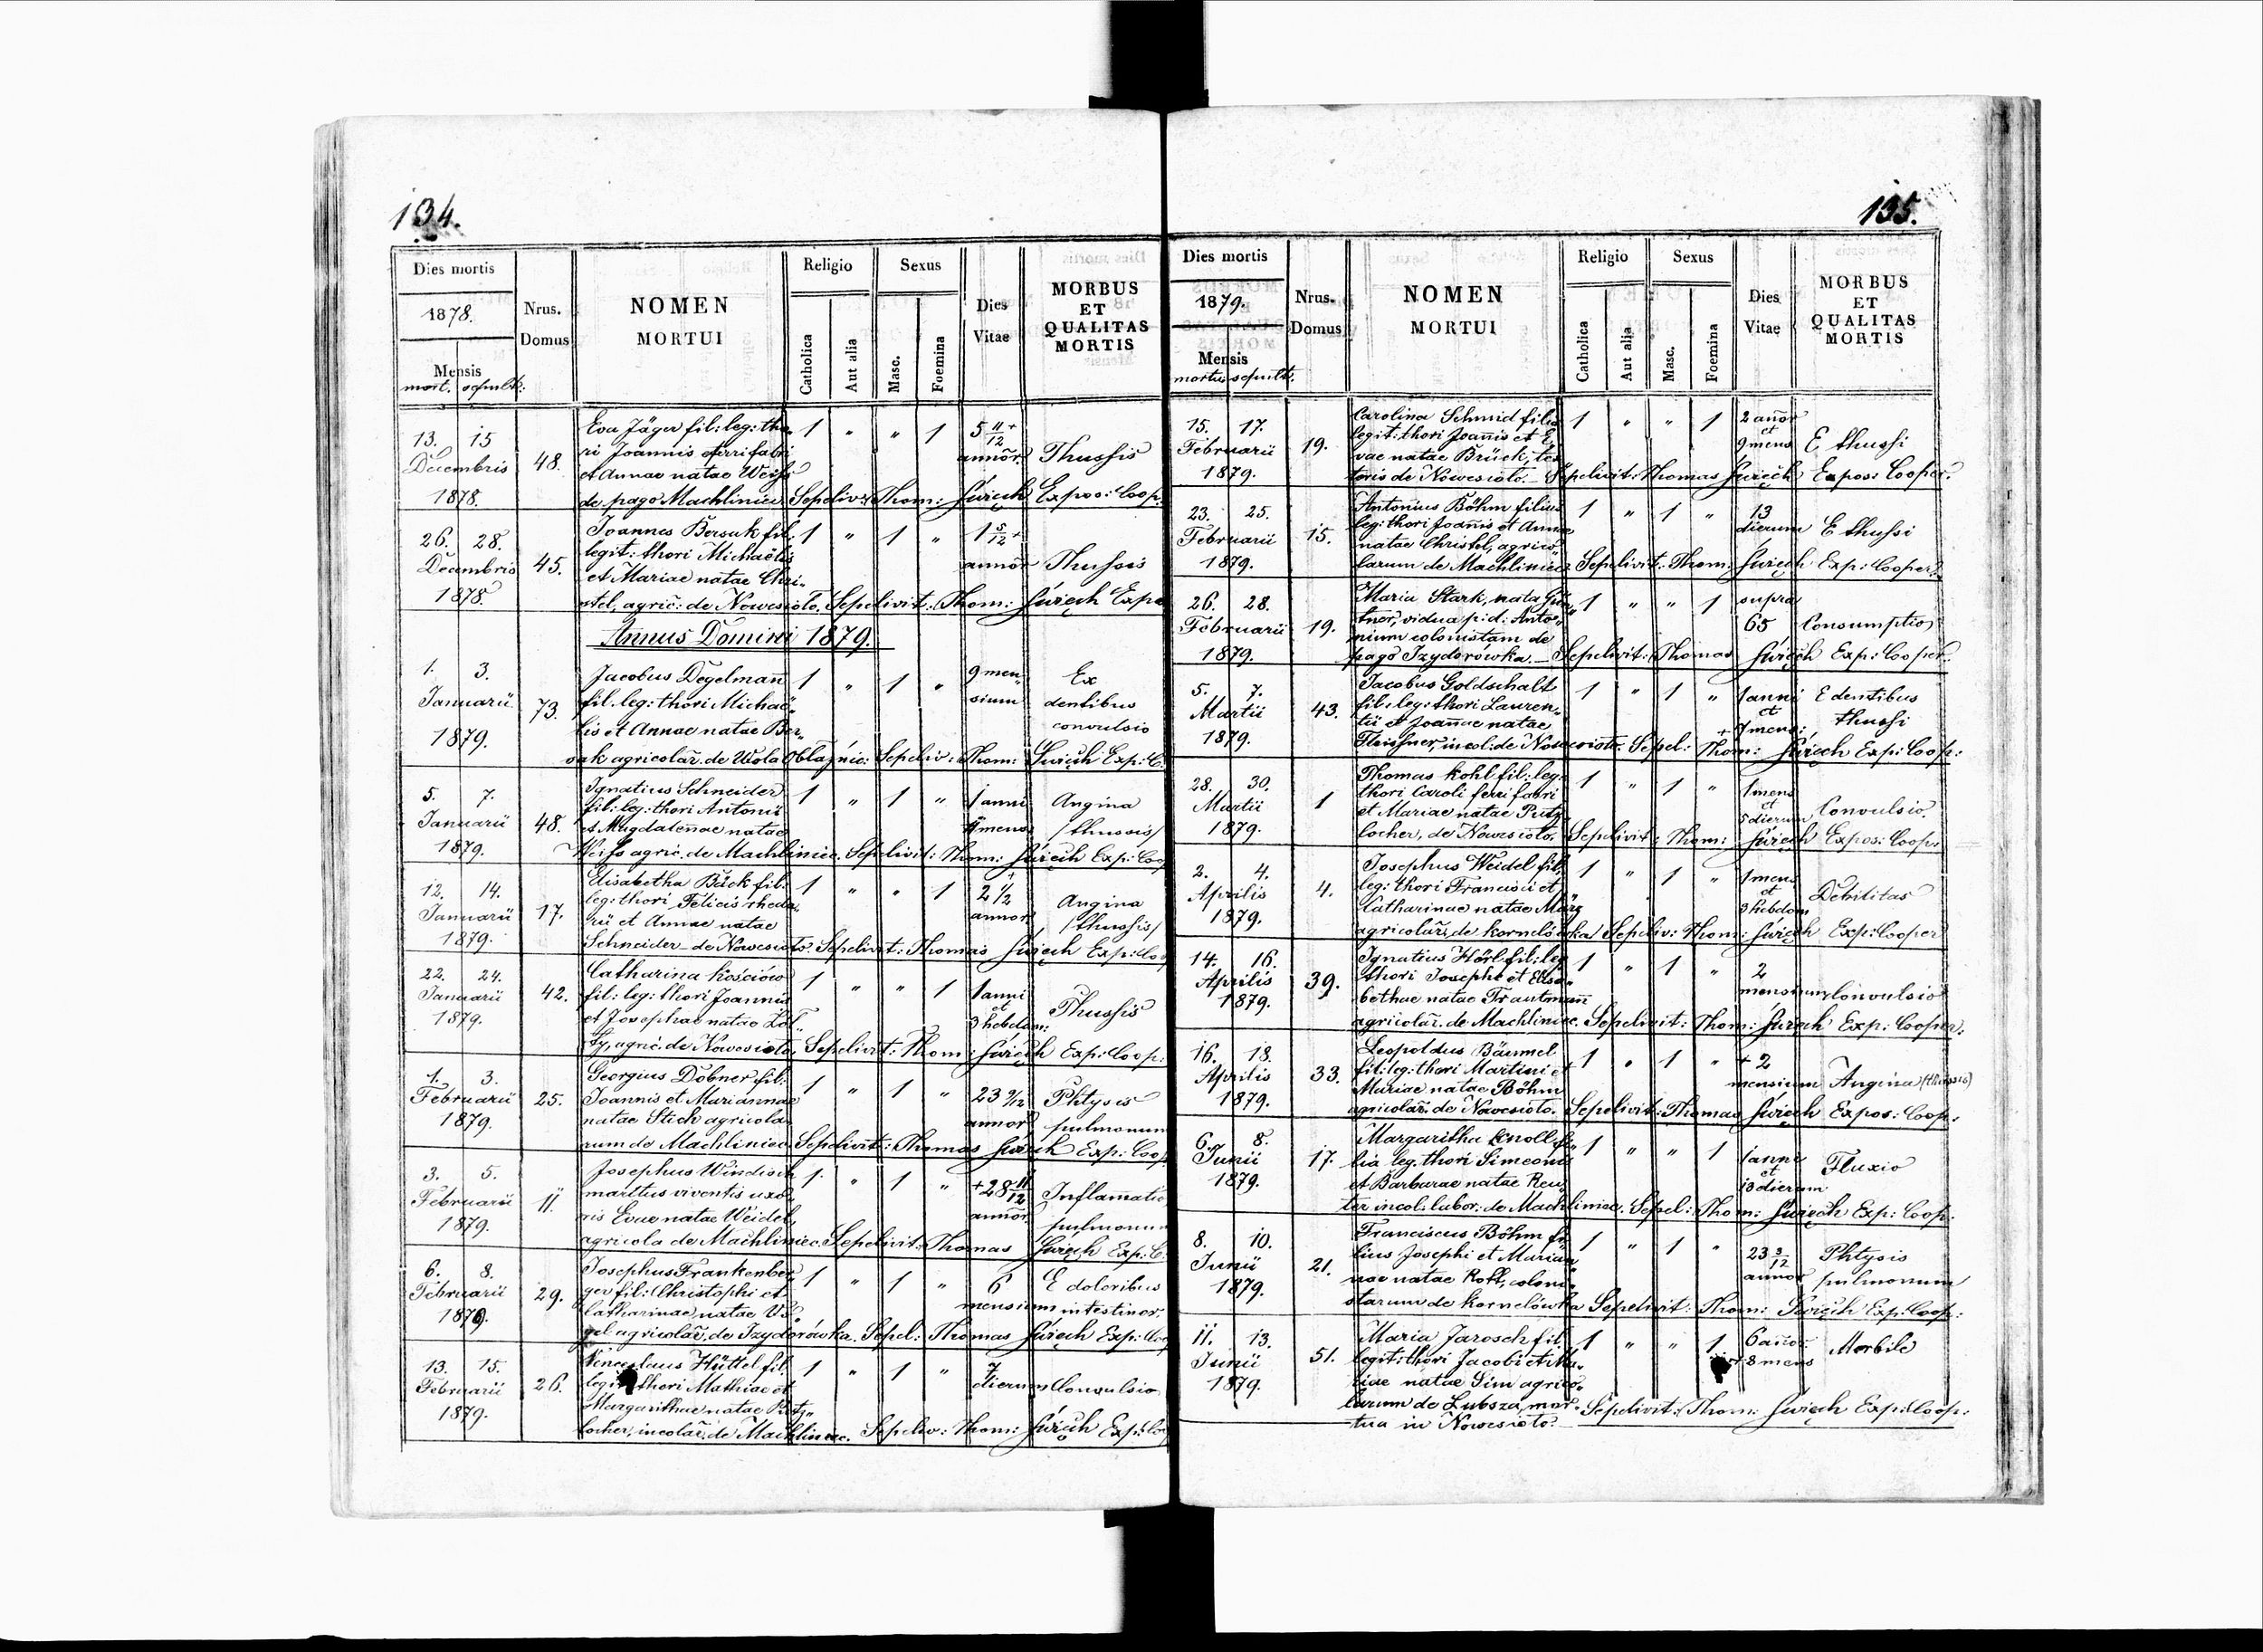 134.
Dies mortis
1878.
Mensis
mort. sepult:
Nrus.
Domus
NOMEN
MORTUI
Religio
Catholica
Aut alia
Sexus
Masc.
Foemina
Dies
Vitae
MORBUS
ET
QUALITAS
MORTIS
13. 15
Decembris
1878.
48.
Eva Jäger fil: leg: tho-
ri Joannis et ferrifabri
et Annae natae Weiss
de pago Machliniec Sepeliv: Thom: Święch Expos: Coop.
1 " " 1
5 11/12 +
annor.
Thussis
26. 28.
Decembris
1878.
45.
Joannes Bersak fil.
legit: thori Michaëlis
et Mariae natae Chri-
stel, agric: de Nowesioło. Sepelivit: Thom: Święch Expo
1 " 1 "
1 5/12 +
annor
Thussis
Annus Domini 1879.
1. 3.
Januarii
1879.
73.
Jacobus Degelmañ
fil. leg: thori Michaë-
lis et Annae natae Ber-
sak agricolar. de Wola Obłaźnic: Sepeliv: Thom: Święch Exp: C.
1 " 1 "
9 men-
sium
Ex
dentibus
convulsio
5. 7.
Januarii
1879.
48.
Ignatius Schneider
fil: leg: thori Antonii
et Magdalenae natae
Weiss agric. de Machliniec. Sepelivit: Thom: Święch Exp: Coop
1 " 1 "
1 anni
mens
Angina
/thussis/
12. 14.
Januarii
1879.
17.
Elisabetha Bäck fil.
leg: thori Felicis rheda-
rii et Annae natae
Schneider de Nowesioło. Sepelivit: Thomas Święch Exp: Coop
1 " " 1
2 1/2
annor
Angina
/thussis/
22. 24.
Januarii
1879.
42.
Catharina Kościów
fil: leg: thori Joannis
et Josephae natae Żoł-
ty, agric. de Nowesioło, Sepelivit: Thom: Święch Exp: Coop:
1 " " 1
1 anni
et
3 hebdom:
Thussis
1. 3.
Februarii
1879.
25.
Georgius Dobner fil:
Joannis et Mariannae
natae Stich agricola-
rum de Machliniec Sepelivit: Thomas Święch Exp: Coop
1 " 1 "
23 9/12
annor
Phtysis
pulmonum
3. 5.
Februarii
1879.
11.
Josephus Windisch
maritus viventis uxo-
ris Evae natae Weidel,
agricola de Machliniec. Sepelivit: Thomas Święch Exp: C.
1 " 1 "
+28 11/12
annor
Inflamatio
pulmonum
6. 8.
Februarii
1879.
29.
Josephus Frankenber-
ger fil: Christophi et
Catharinae natae Vo-
gel agricolar. de Izydorówka. Sepel: Thomas Święch Exp: Coop
1 " 1 "
6
mensium
E doloribus
intestinor.
13. 15.
Februarii
1879.
26.
Venceslaus Hüttel fil.
legit: thori Mathiae et
Margarithae natae Putz-
locher, incolar. de Machliniec. Sepeliv: Thom: Święch Exp: Coo
1 " 1 "
7
dierum
Convulsio
135.
Dies mortis
1879.
Mensis
mortus sepult.
Nrus.
Domus
NOMEN
MORTUI
Religio
Catholica
Aut alia
Sexus
Masc.
Foemina
Dies
Vitae
MORBUS
ET
QUALITAS
MORTIS
15. 17.
Februarii
1879.
19.
Carolina Schmid filia
legit: thori Joannis et E-
vae natae Brück, tex-
toris de Nowesioło. Sepelivit: Thomas Święch Expos: Cooper.
1 " " 1
2 anor
et
9 mens
E thussi
23. 25.
Februarii
1879.
15.
Antonius Böhm filius
leg: thori Joañis et Annae
natae Christel, agrico-
larum de Machliniec Sepelivit: Thom: Święch Exp: Cooper.
1 " 1 "
13
dierum
E thussi
26. 28.
Februarii
1879.
19.
Maria Stark, nata Gü-
tner, vidua p: d: Anto-
nium colonistam de
pago Izydorówka. Sepelivit: Thomas Święch Exp: Cooper.
1 " " 1
supra
65
Consumptio
5. 7.
Martii
1879.
43.
Jacobus Goldschalt
fil: leg: thori Lauren-
tii et Joañae natae
Fleissner, incol: de Nowesioło. Sepel: Thom: Święch Exp: Coop:
1 " 1 "
1 anni
et
+ 7 mens:
E dentibus
thussi
28. 30.
Martii
1879.
1
Thomas Kohl fil: leg:
thori Caroli ferrifabri
et Mariae natae Putz-
locher, de Nowesioło. Sepelivit: Thom: Święch Expos: Coop:
1 " 1 "
1 mens
et
5 dierum
Convulsio.
2. 4.
Aprilis
1879.
4.
Josephus Weidel fil.
leg: thori Francisci et
Catharinae natae März
agricolar. de Kornelówka Sepeliv: Thom: Święch Exp: Cooper
1 " 1 "
1 mens
et
3 hebdom
Debilitas
14. 16.
Aprilis
1879.
39.
Ignatius Hörl fil: leg
thori Josephi et Elsa-
bethae natae Trautmañ
agricolar. de Machliniec. Sepelivit: Thom: Święch Exp: Cooper.
1 " 1 "
2
mensium
Convulsio
16. 18.
Aprilis
1879.
33.
Leopoldus Bäumel
fil: leg: thori Martini et
Mariae natae Böhm
agricolar. de Nowesioło. Sepelivit: Thomas Święch Expos: Coop:
1 " 1 "
+ 2
mensium
Angina (thussis)
6. 8.
Junii
1879.
17.
Margaritha Knoll fi-
lia leg. thori Simeonis
et Barbarae natae Reu-
ter incol. labor: de Machliniec. Sepel: Thom: Święch Exp: Coop:
1 " " 1
1 anni
et
13 dierum
Fluxio
8. 10.
Junii
1879.
21.
Franciscus Böhm fi-
lius Josephi et Marian-
nae natae Roth, coloni-
starum de Kornelówka Sepelivit: Thom: Święch Exp: Coop:
1 " 1 "
23 3/12
annor
Phtysis
pulmonum
11. 13.
Junii
1879.
51.
Maria Jarosch fil.
legit: thori Jacobi et Ma-
riae natae Sim agrico-
larum de Lubsza, mor-
tua in Nowesioło. Sepelivit: Thom: Święch Exp: Coop:
1 " " 1
6 añor.
+8 mens
Morbili